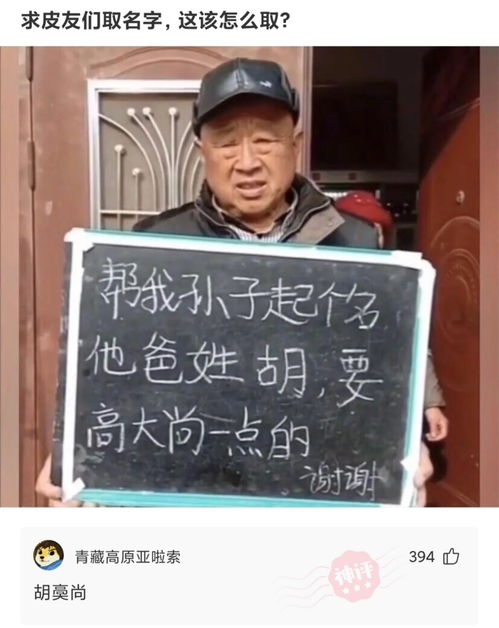 求皮友们取名字，这该怎么取？
帮我孙子起个名
他爸姓胡，要
高大尚一点的
谢谢
青藏高原亚啦索
394
神评
胡䯨尚